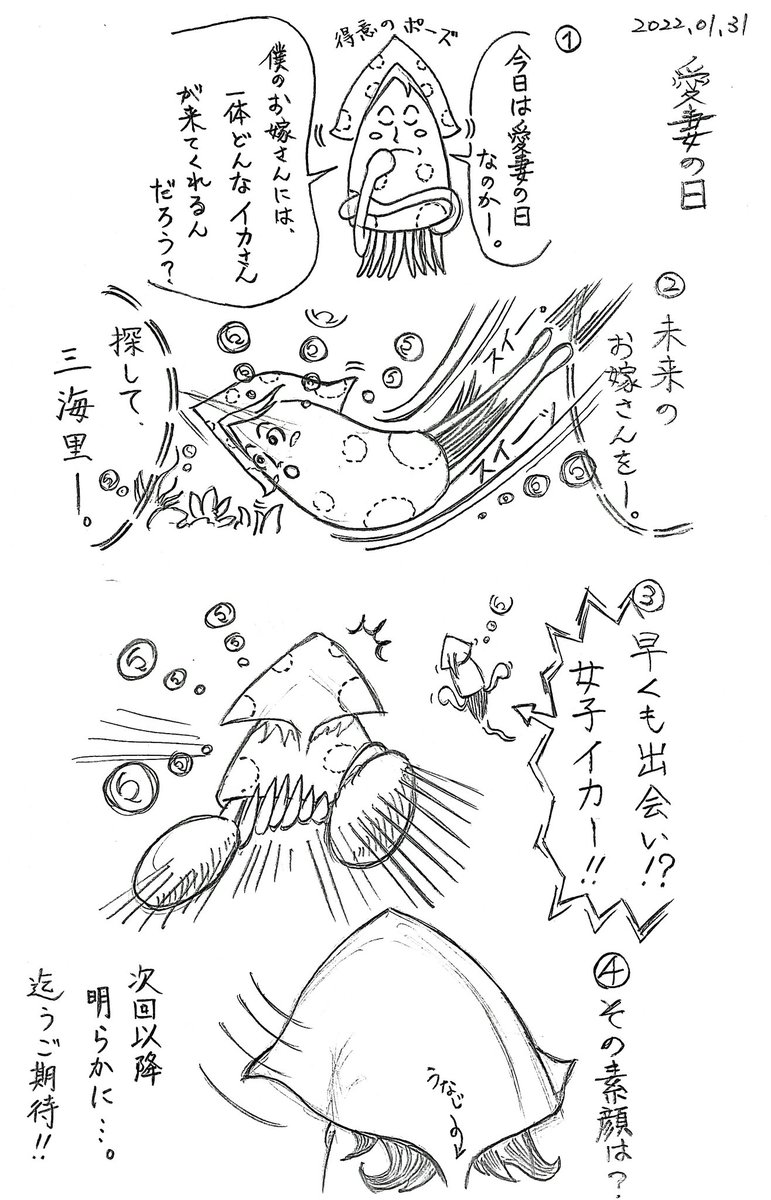 2022.01.31
愛妻の日
①
得意のポーズ
今日は愛妻の日
なのかー。
僕のお嫁さんには、
一体どんなイカさん
が来てくれるん
だろう?
②
未来の
お嫁さんをー。
スイー。
スイーッ
探して、
三海里ー。
③
早くも出会い!?
女子イカー!!
④
その素顔は?
うなじ
次回以降
明らかに…。
迄うご期待!!